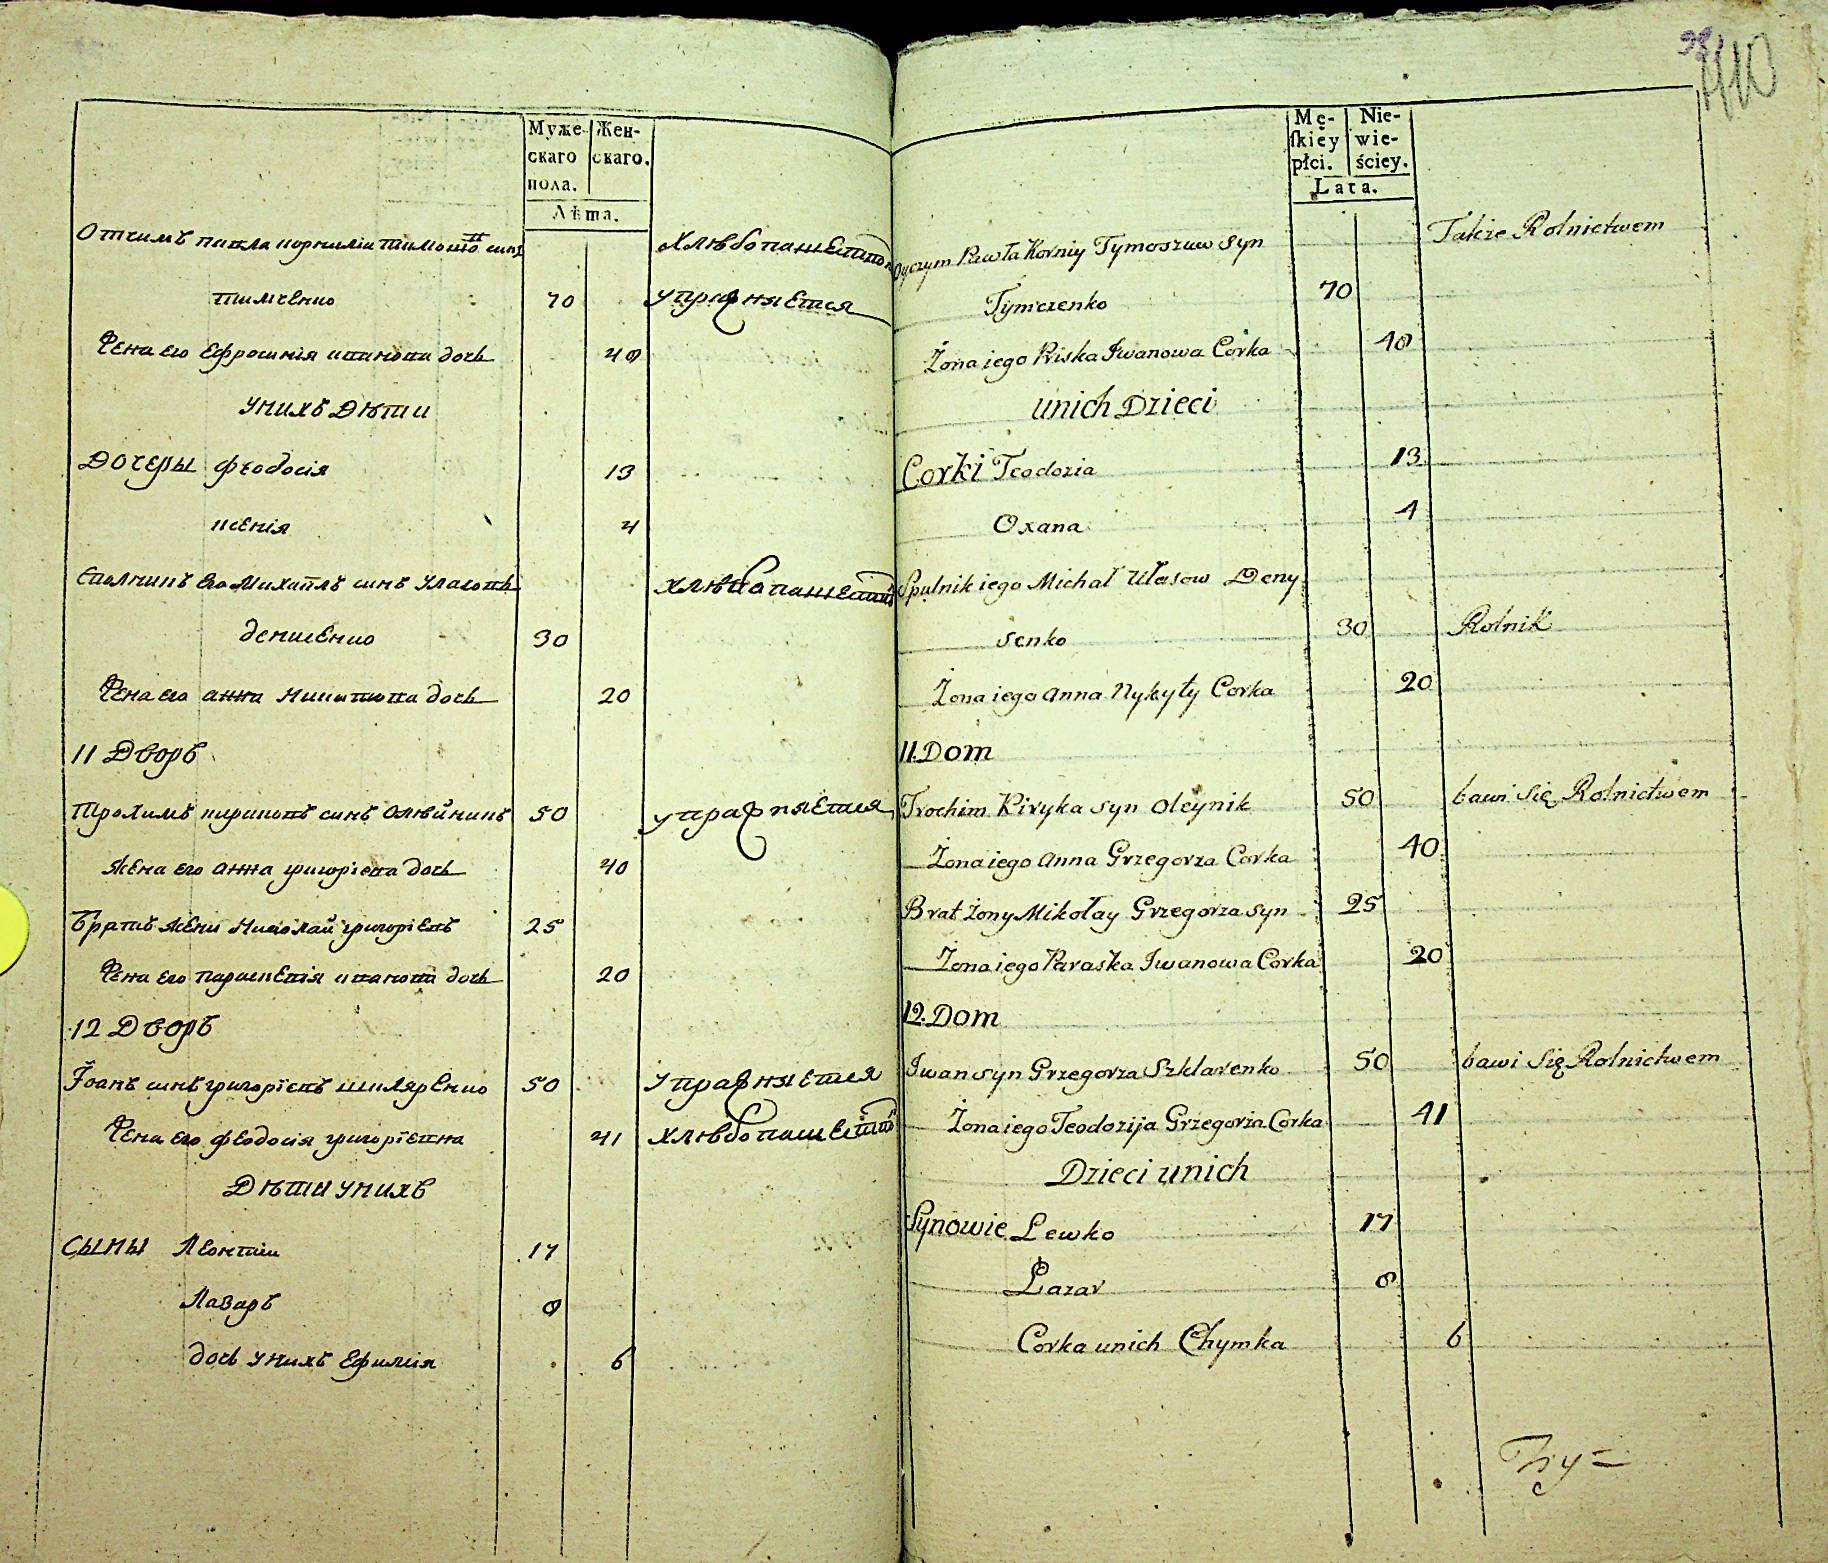 98
110
Муже- Жен-
скаго скаго.
пола.
Лѣта.
Отчимъ павла корнилiи тимошо синъ хлѣбопашеством
тимченко 70 упражняется
Жена его Ефросинiя иванова дочь 40
У нихъ Дѣти
Дочеры Феодосiя 13
ксенiя 4
Сполникъ его Михайлъ синъ Уласовъ хлѣбопашество
денисенко 30
Жена его анна никитова дочь 20
11 Дворъ
Трохимъ кириковъ синъ Олѣйникъ 50 упражняется
Жена его анна григорiева дочь 40
Братъ жени Николай григорiевъ 25
Жена его параскевiя иванова дочь 20
12 Дворъ
Iоанъ синъ григорiевъ шкляренко 50 упражняется
Жена его феодосiя григорiевна 41 хлѣбопашество
Дѣти у нихъ
Сыны Леонтiи 17
Лазаръ 8
дочь у нихъ Ефимiя 6
Mę- Nie-
ſkiéy wie-
płci. ściey.
Lata.
Oyczym Pawła Korniy Tymoszuw Syn Także Rolnictwem
Tymczenko 70
Żona iego Priska Iwanowa Corka 40
unich Dzieci
Corki Teodozia 13
Oxana 4
Spulnik iego Michał Ułasow Deny
senko 30 Rolnik
Żona iego Anna Nykyty Corka 20
11. Dom
Trochim Kiryka Syn Oleynik 50 bawi Się Rolnictwem
Żona iego Anna Grzegorza Corka 40
Brat Żony Mikołay Grzegorza syn 25
Żona iego Paraska Iwanowa Corka 20
12. Dom
Iwan syn Grzegorza Szklarenko 50 bawi Się Rolnictwem
Żona iego Teodozija Grzegorza Corka 41
Dzieci unich
Synowie Lewko 17
Łazar 8
Corka unich Chymka 6